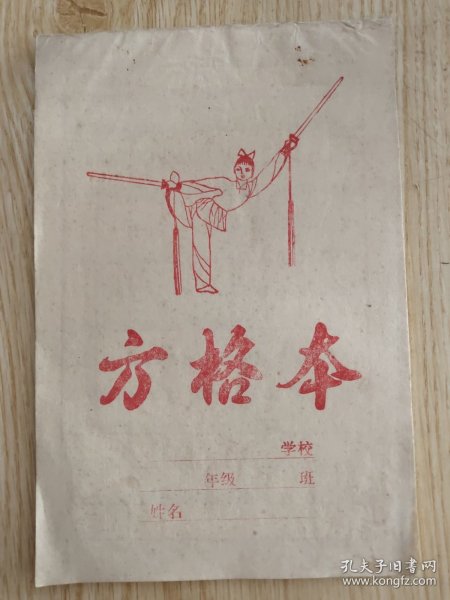 方格本
学校
年级 班
姓名
孔夫子旧书网
www.kongfz.com